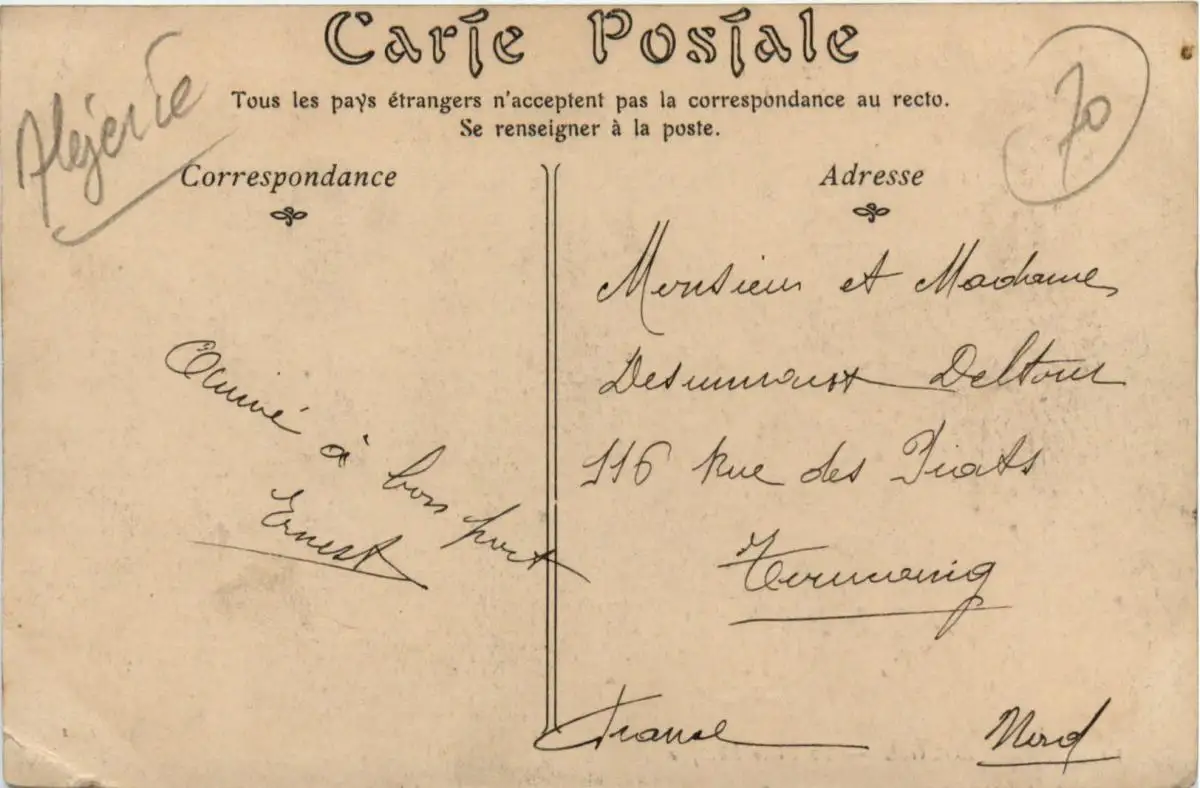 Carte Postale
Tous les pays étrangers n'acceptent pas la correspondance au recto.
Se renseigner à la poste.
Algérie
70
Correspondance
Adresse
Arrivé
à bon port
Ernest
Monsieur et Madame
Deltour
116 Rue des Piats
Tourcoing
France Nord